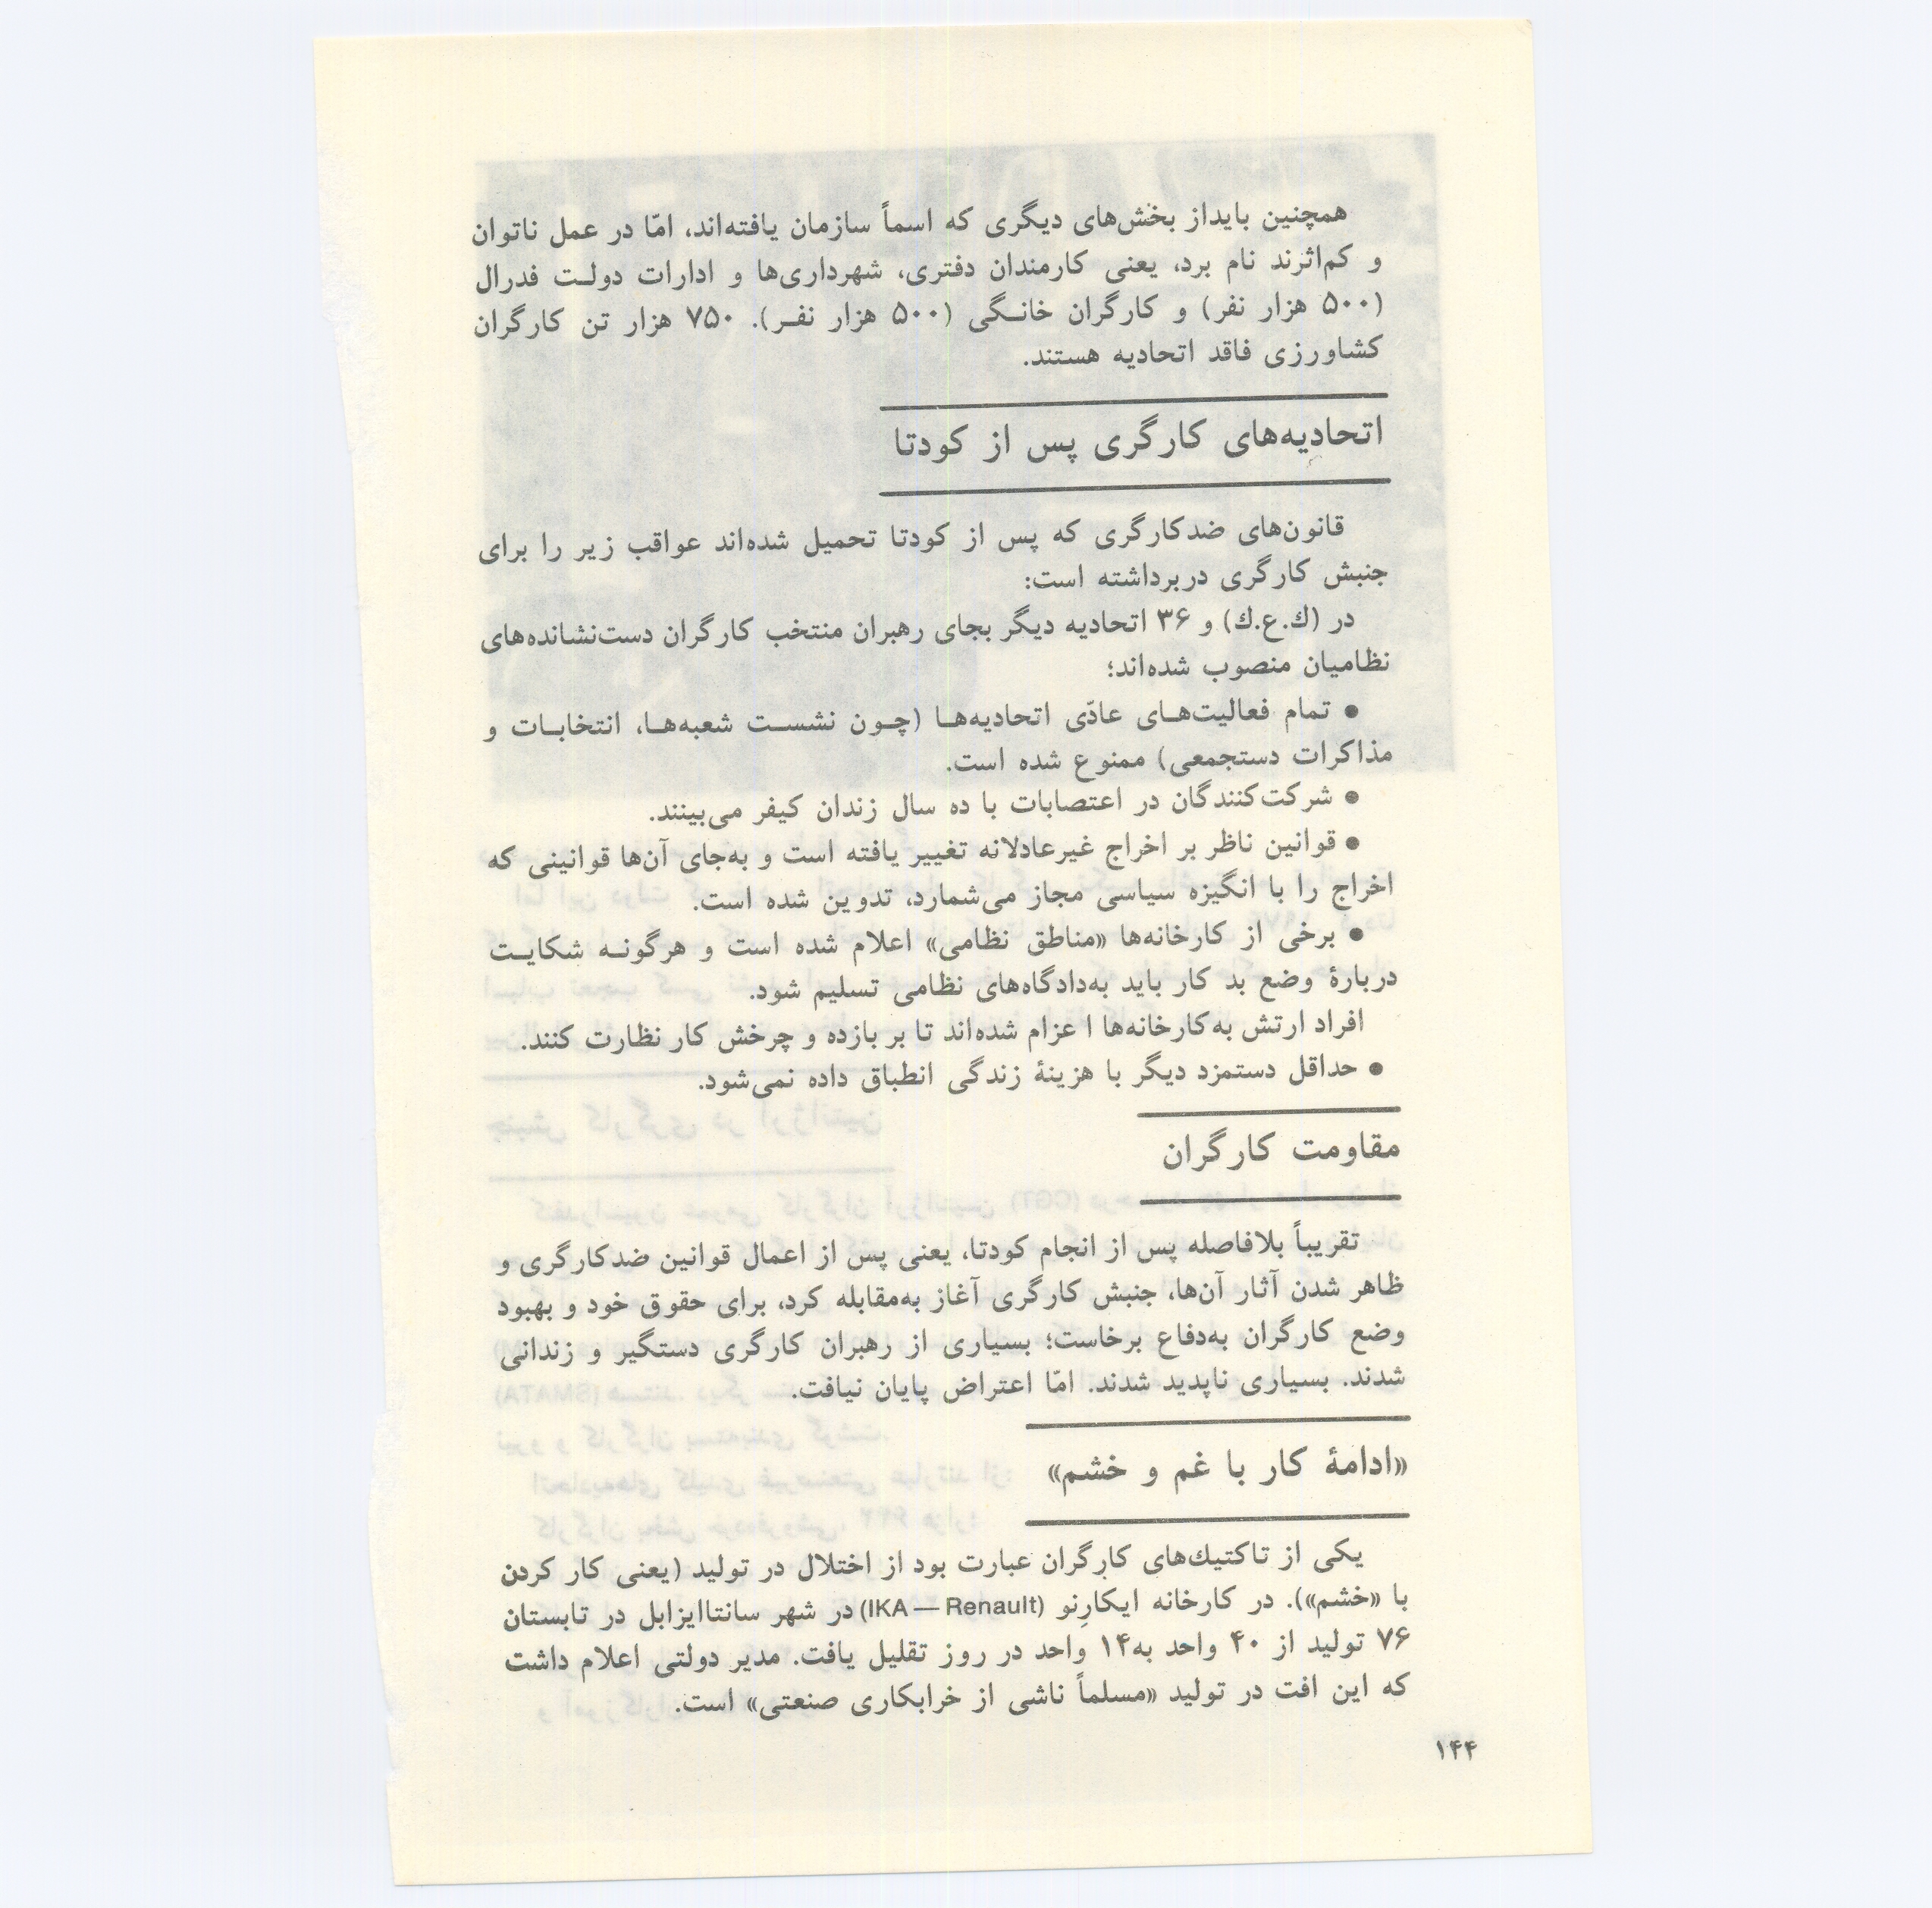 همچنین بایداز بخش‌های دیگری که اسماً سازمان یافته‌اند، امّا در عمل ناتوان
و کم‌اثرند نام برد، یعنی کارمندان دفتری، شهرداری‌ها و ادارات دولت فدرال
(۵۰۰ هزار نفر) و کارگران خانگی (۵۰۰ هزار نفر). ۷۵۰ هزار تن کارگران
کشاورزی فاقد اتحادیه هستند.
اتحادیه‌های کارگری پس از کودتا
قانون‌های ضدکارگری که پس از کودتا تحمیل شده‌اند عواقب زیر را برای
جنبش کارگری دربرداشته است:
در (ك.ع.ك) و ۳۶ اتحادیه دیگر بجای رهبران منتخب کارگران دست‌نشانده‌های
نظامیان منصوب شده‌اند؛
● تمام فعالیت‌های عادّی اتحادیه‌ها (چون نشست شعبه‌ها، انتخابات و
مذاکرات دستجمعی) ممنوع شده است.
● شرکت‌کنندگان در اعتصابات با ده سال زندان کیفر می‌بینند.
● قوانین ناظر بر اخراج غیرعادلانه تغییر یافته است و به‌جای آن‌ها قوانینی که
اخراج را با انگیزه سیاسی مجاز می‌شمارد، تدوین شده است.
● برخی از کارخانه‌ها «مناطق نظامی» اعلام شده است و هرگونه شکایت
دربارهٔ وضع بد کار باید به‌دادگاه‌های نظامی تسلیم شود.
افراد ارتش به‌کارخانه‌ها ا عزام شده‌اند تا بر بازده و چرخش کار نظارت کنند.
● حداقل دستمزد دیگر با هزینهٔ زندگی انطباق داده نمی‌شود.
مقاومت کارگران
تقریباً بلافاصله پس از انجام کودتا، یعنی پس از اعمال قوانین ضدکارگری و
ظاهر شدن آثار آن‌ها، جنبش کارگری آغاز به‌مقابله کرد، برای حقوق خود و بهبود
وضع کارگران به‌دفاع برخاست؛ بسیاری از رهبران کارگری دستگیر و زندانی
شدند. بسیاری ناپدید شدند. امّا اعتراض پایان نیافت.
«ادامهٔ کار با غم و خشم»
یکی از تاکتیك‌های کارگران عبارت بود از اختلال در تولید (یعنی کار کردن
با «خشم»). در کارخانه ایکارِنو (IKA — Renault) در شهر سانتاایزابل در تابستان
۷۶ تولید از ۴۰ واحد به۱۴ واحد در روز تقلیل یافت. مدیر دولتی اعلام داشت
که این افت در تولید «مسلماً ناشی از خرابکاری صنعتی» است.
۱۴۴